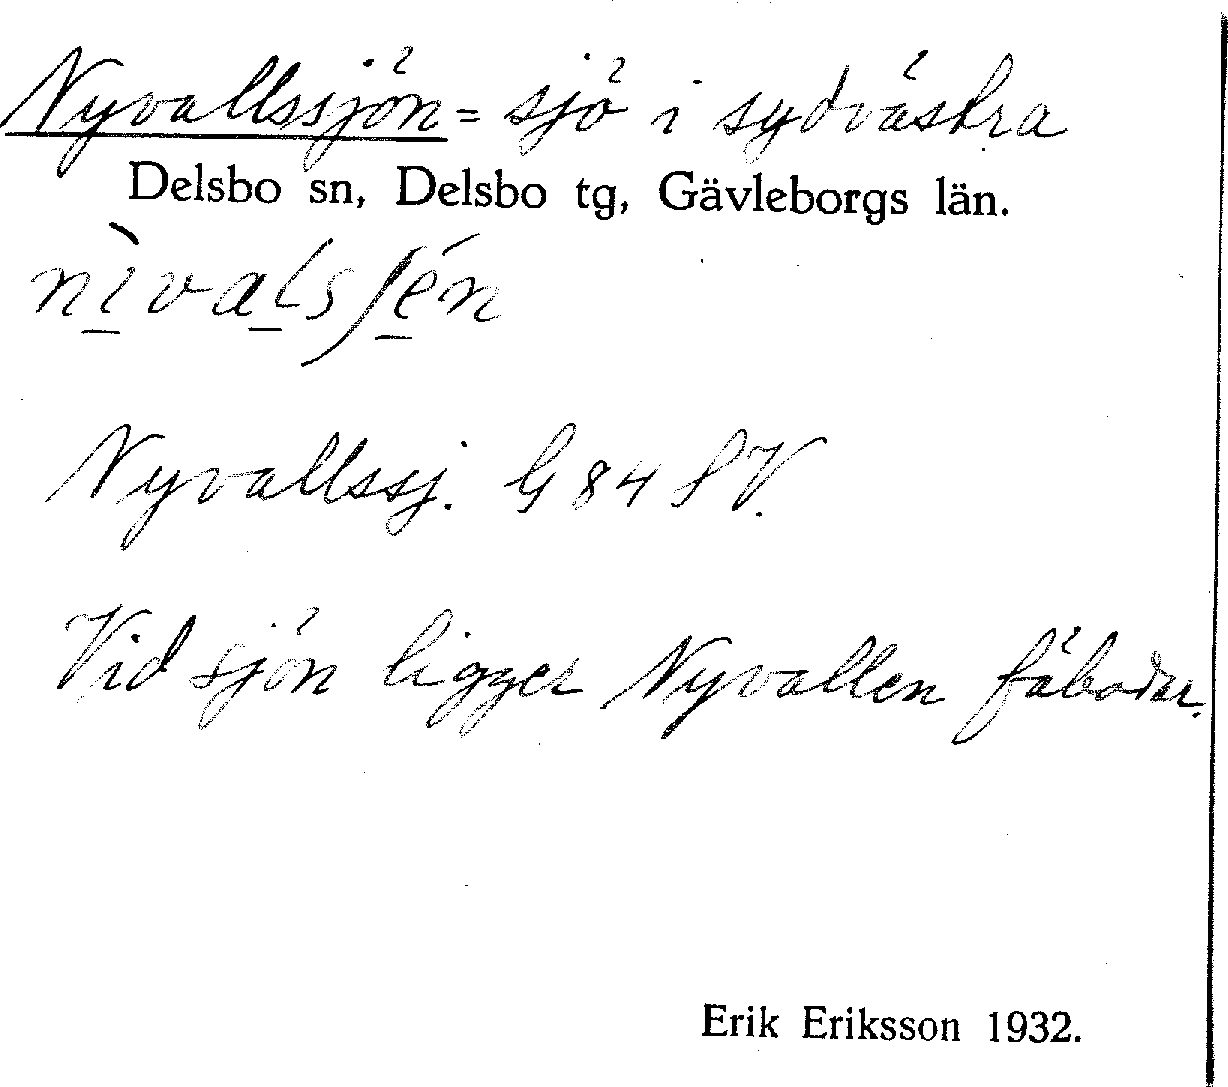 Nyvallssjön = sjö i sydvästra
Delsbo sn, Delsbo tg, Gävleborgs län.
nìvalsʃén
Nyvallssj. G 84 SV.
Vid sjön ligger Nyvallen fäbodar.
Erik Eriksson 1932.